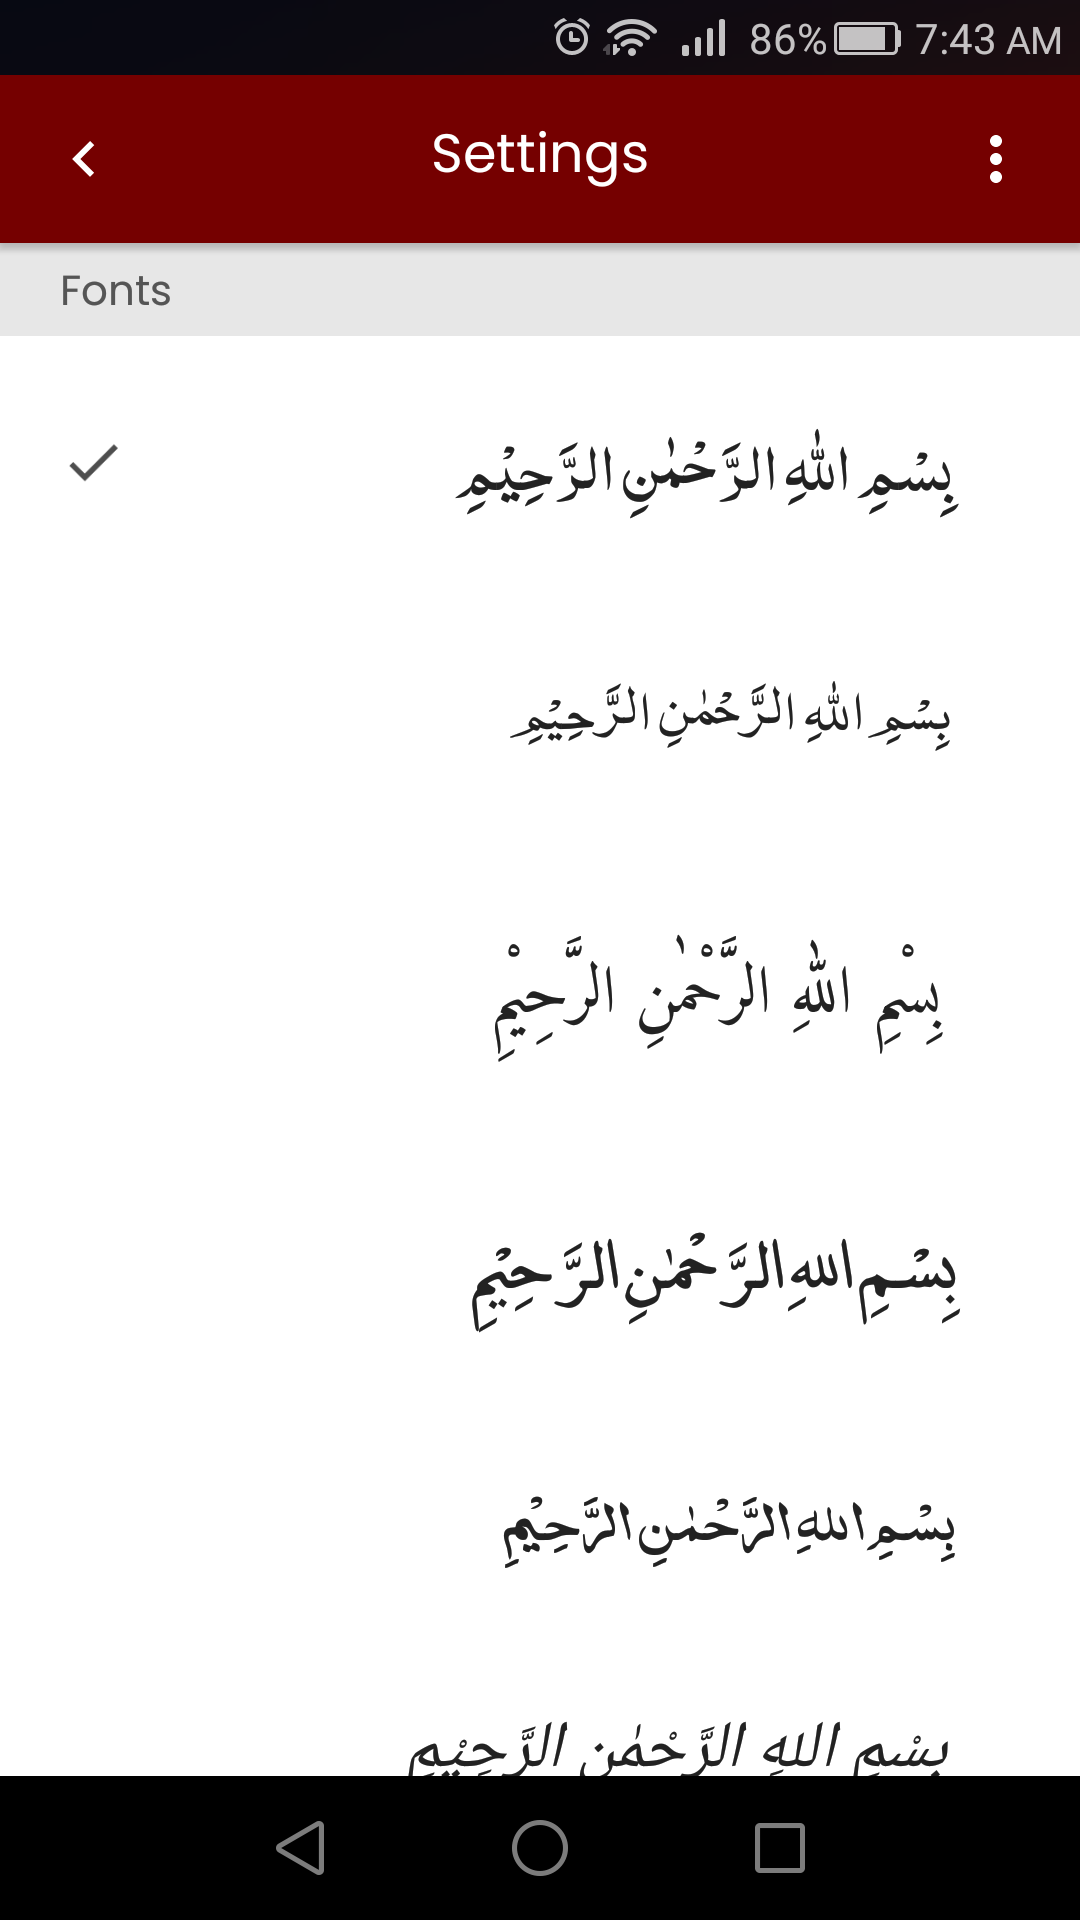 86% 7:43 AM
Settings
Fonts
بِسْمِ اللهِ الرَّحْمٰنِ الرَّحِيْمِ
بِسْمِ اللهِ الرَّحْمٰنِ الرَّحِيْمِ
بِسْمِ اللهِ الرَّحْمٰنِ الرَّحِيْمِ
بِسْمِ اللهِ الرَّحْمٰنِ الرَّحِيْمِ
بِسْمِ اللهِ الرَّحْمٰنِ الرَّحِيْمِ
بِسْمِ اللهِ الرَّحْمٰنِ الرَّحِيْمِ